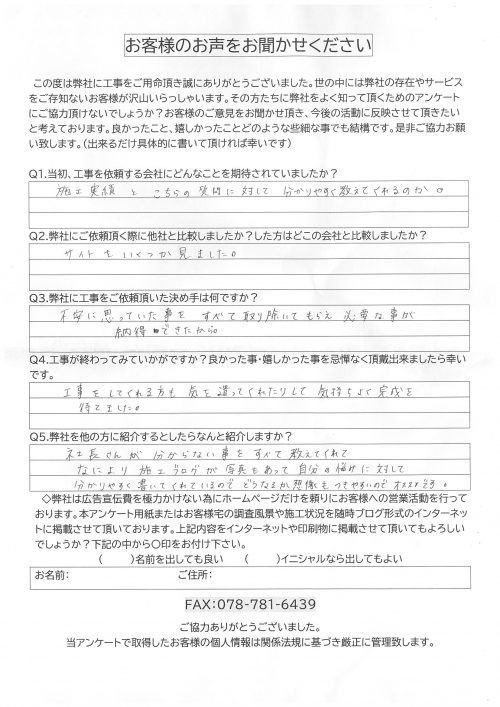 お客様のお声をお聞かせください
この度は弊社に工事をご用命頂き誠にありがとうございました。世の中には弊社の存在やサービス
をご存知ないお客様が沢山いらっしゃいます。その方たちに弊社をよく知って頂くためのアンケート
にご協力頂けないでしょうか?お客様のご意見をお聞かせ頂き、今後の活動に反映させて頂きたい
と考えております。良かったこと、嬉しかったことどのような些細な事でも結構です。是非ご協力お願
い致します。(出来るだけ具体的に書いて頂ければ幸いです)
Q1.当初、工事を依頼する会社にどんなことを期待されていましたか?
施工実績と こちらの質問に対して 分かりやすく教えてくれるのか。
Q2.弊社にご依頼頂く際に他社と比較しましたか?した方はどこの会社と比較しましたか?
サイトをいくつか見ました。
Q3.弊社に工事をご依頼頂いた決め手は何ですか?
不安に思っていた事を すべて取り除いてもらえ 必要な事が
納得できたから。
Q4.工事が終わってみていかがですか?良かった事・嬉しかった事を忌憚なく頂戴出来ましたら幸い
です。
工事をしてくれる方も 気を遣ってくれたりして 気持ちよく完成を
待てました。
Q5.弊社を他の方に紹介するとしたらなんと紹介しますか?
社長さんが 分からない事を すべて教えてくれて
なにより 施工ブログが 写真もあって 自分の悩みに対して
分かりやすく書いてくれているので どうなるか想像もつきやすいので オススメです。
◇弊社は広告宣伝費を極力かけない為にホームページだけを頼りにお客様への営業活動を行って
おります。本アンケート用紙またはお客様宅の調査風景や施工状況を随時ブログ形式のインターネッ
トに掲載させて頂いております。上記内容をインターネットや印刷物に掲載させて頂いてもよろしい
でしょうか?下記の中から〇印をお付け下さい。
( )名前を出しても良い ( )イニシャルなら出してもよい
お名前: ご住所:
FAX:078-781-6439
ご協力ありがとうございました。
当アンケートで取得したお客様の個人情報は関係法規に基づき厳正に管理致します。